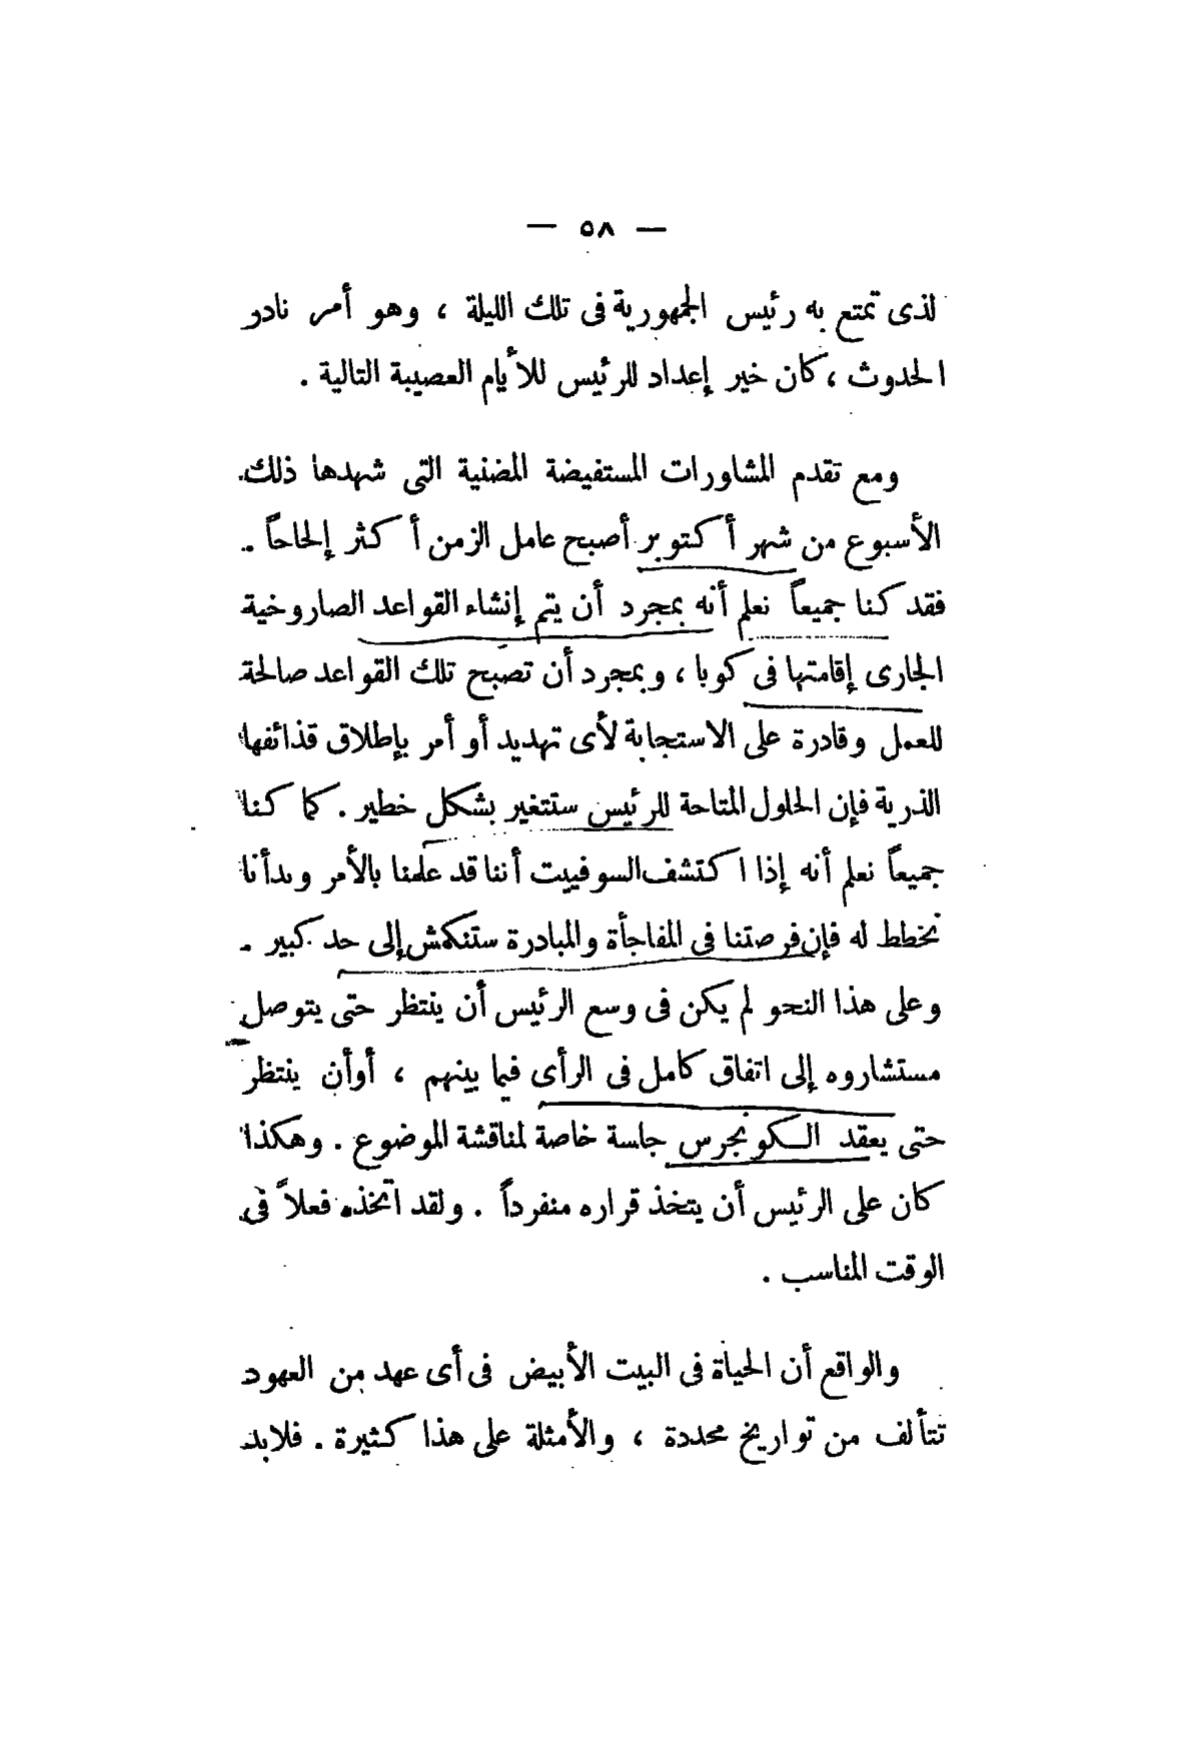 — ٥٨ —
لذى تمتع به رئيس الجمهورية فى تلك الليلة ، وهو أمر نادر
الحدوث ، كان خير إعداد للرئيس للأيام العصيبة التالية .
ومع تقدم المشاورات المستفيضة المضنية التى شهدها ذلك
الأسبوع من شهر أكتوبر أصبح عامل الزمن أكثر إلحاحاً .
فقد كنا جميعاً نعلم أنه بمجرد أن يتم إنشاء القواعد الصاروخية
الجارى إقامتها فى كوبا ، وبمجرد أن تصبح تلك القواعد صالحة
للعمل وقادرة على الاستجابة لأى تهديد أو أمر بإطلاق قذائفها
الذرية فإن الحلول المتاحة للرئيس ستتغير بشكل خطير . كما كنا
جميعاً نعلم أنه إذا اكتشف السوفييت أننا قد علمنا بالأمر وبدأنا
نخطط له فإن فرصتنا فى المفاجأة والمبادرة ستنكمش إلى حد كبير .
وعلى هذا النحو لم يكن فى وسع الرئيس أن ينتظر حتى يتوصل
مستشاروه إلى اتفاق كامل فى الرأى فيما بينهم ، أوأن ينتظر
حتى يعقد الكونجرس جلسة خاصة لمناقشة الموضوع . وهكذا
كان على الرئيس أن يتخذ قراره منفرداً . ولقد اتخذه فعلاً فى
الوقت المناسب .
والواقع أن الحياة فى البيت الأبيض فى أى عهد من العهود
تتألف من تواريخ محددة ، والأمثلة على هذا كثيرة . فلابد